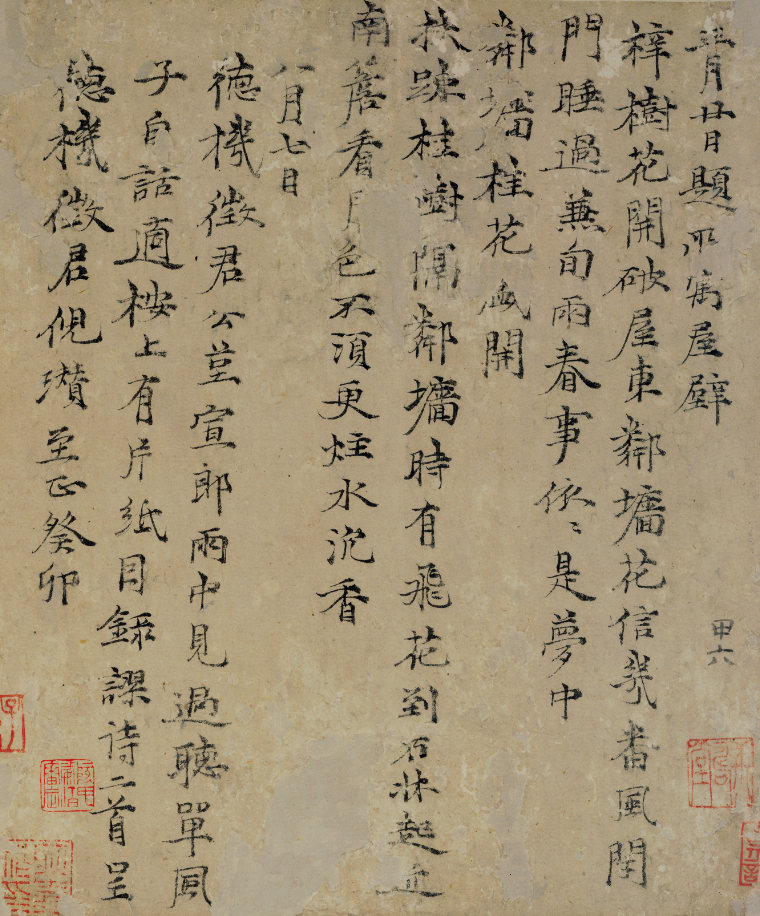 三月廿日題所寓屋壁
梓樹花開破屋東鄰墻花信幾番風閉
門睡過兼旬雨春事依〻是夢中
鄰墻桂花盛開
扶疎桂樹隔鄰墻時有飛花到石牀起近
南簷看月色不須更炷水沉香
八月七日
德機徵君公莖宣郎雨中見過聽單風
子自話適桉上有片紙因錄謬詩二首呈
德機徵君倪瓚至正癸卯
甲六